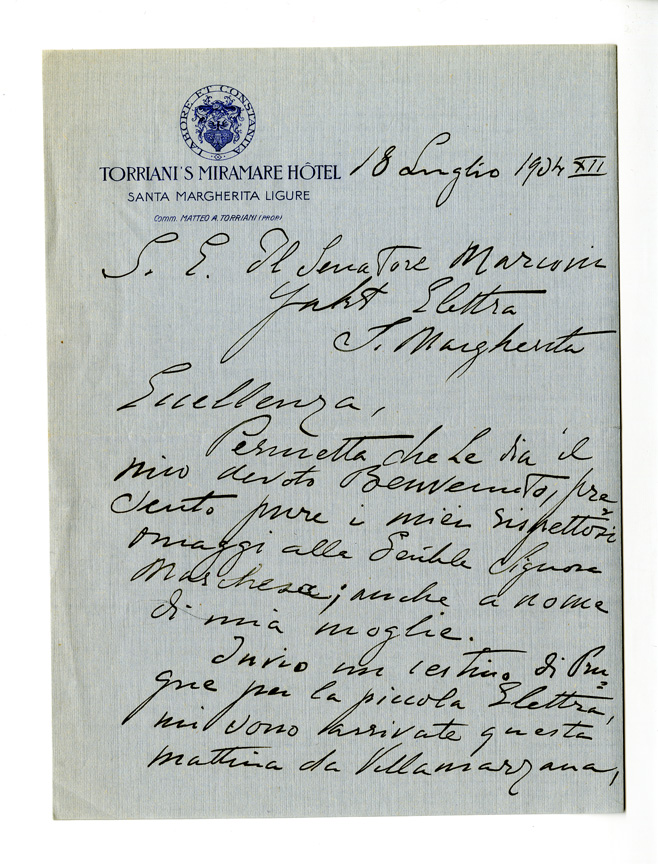 LABORE ET CONSTANTIA
TORRIANI'S MIRAMARE HÔTEL
SANTA MARGHERITA LIGURE
Comm. MATTEO A. TORRIANI (PROP.)
18 Luglio 1934 XII
S. E. Il Senatore Marconi
Yakt Elettra
S. Margherita
Eccellenza,
Permetta che Le dia il
mio devoto Benvenuto, pre=
sento pure i miei rispettosi
omaggi alla Gentile Signora
Marchesa; anche a nome
di mia moglie.
Invio un cestino di Pru=
gne per la piccola Elettra,
mi sono arrivate questa
mattina da Villamarzana,